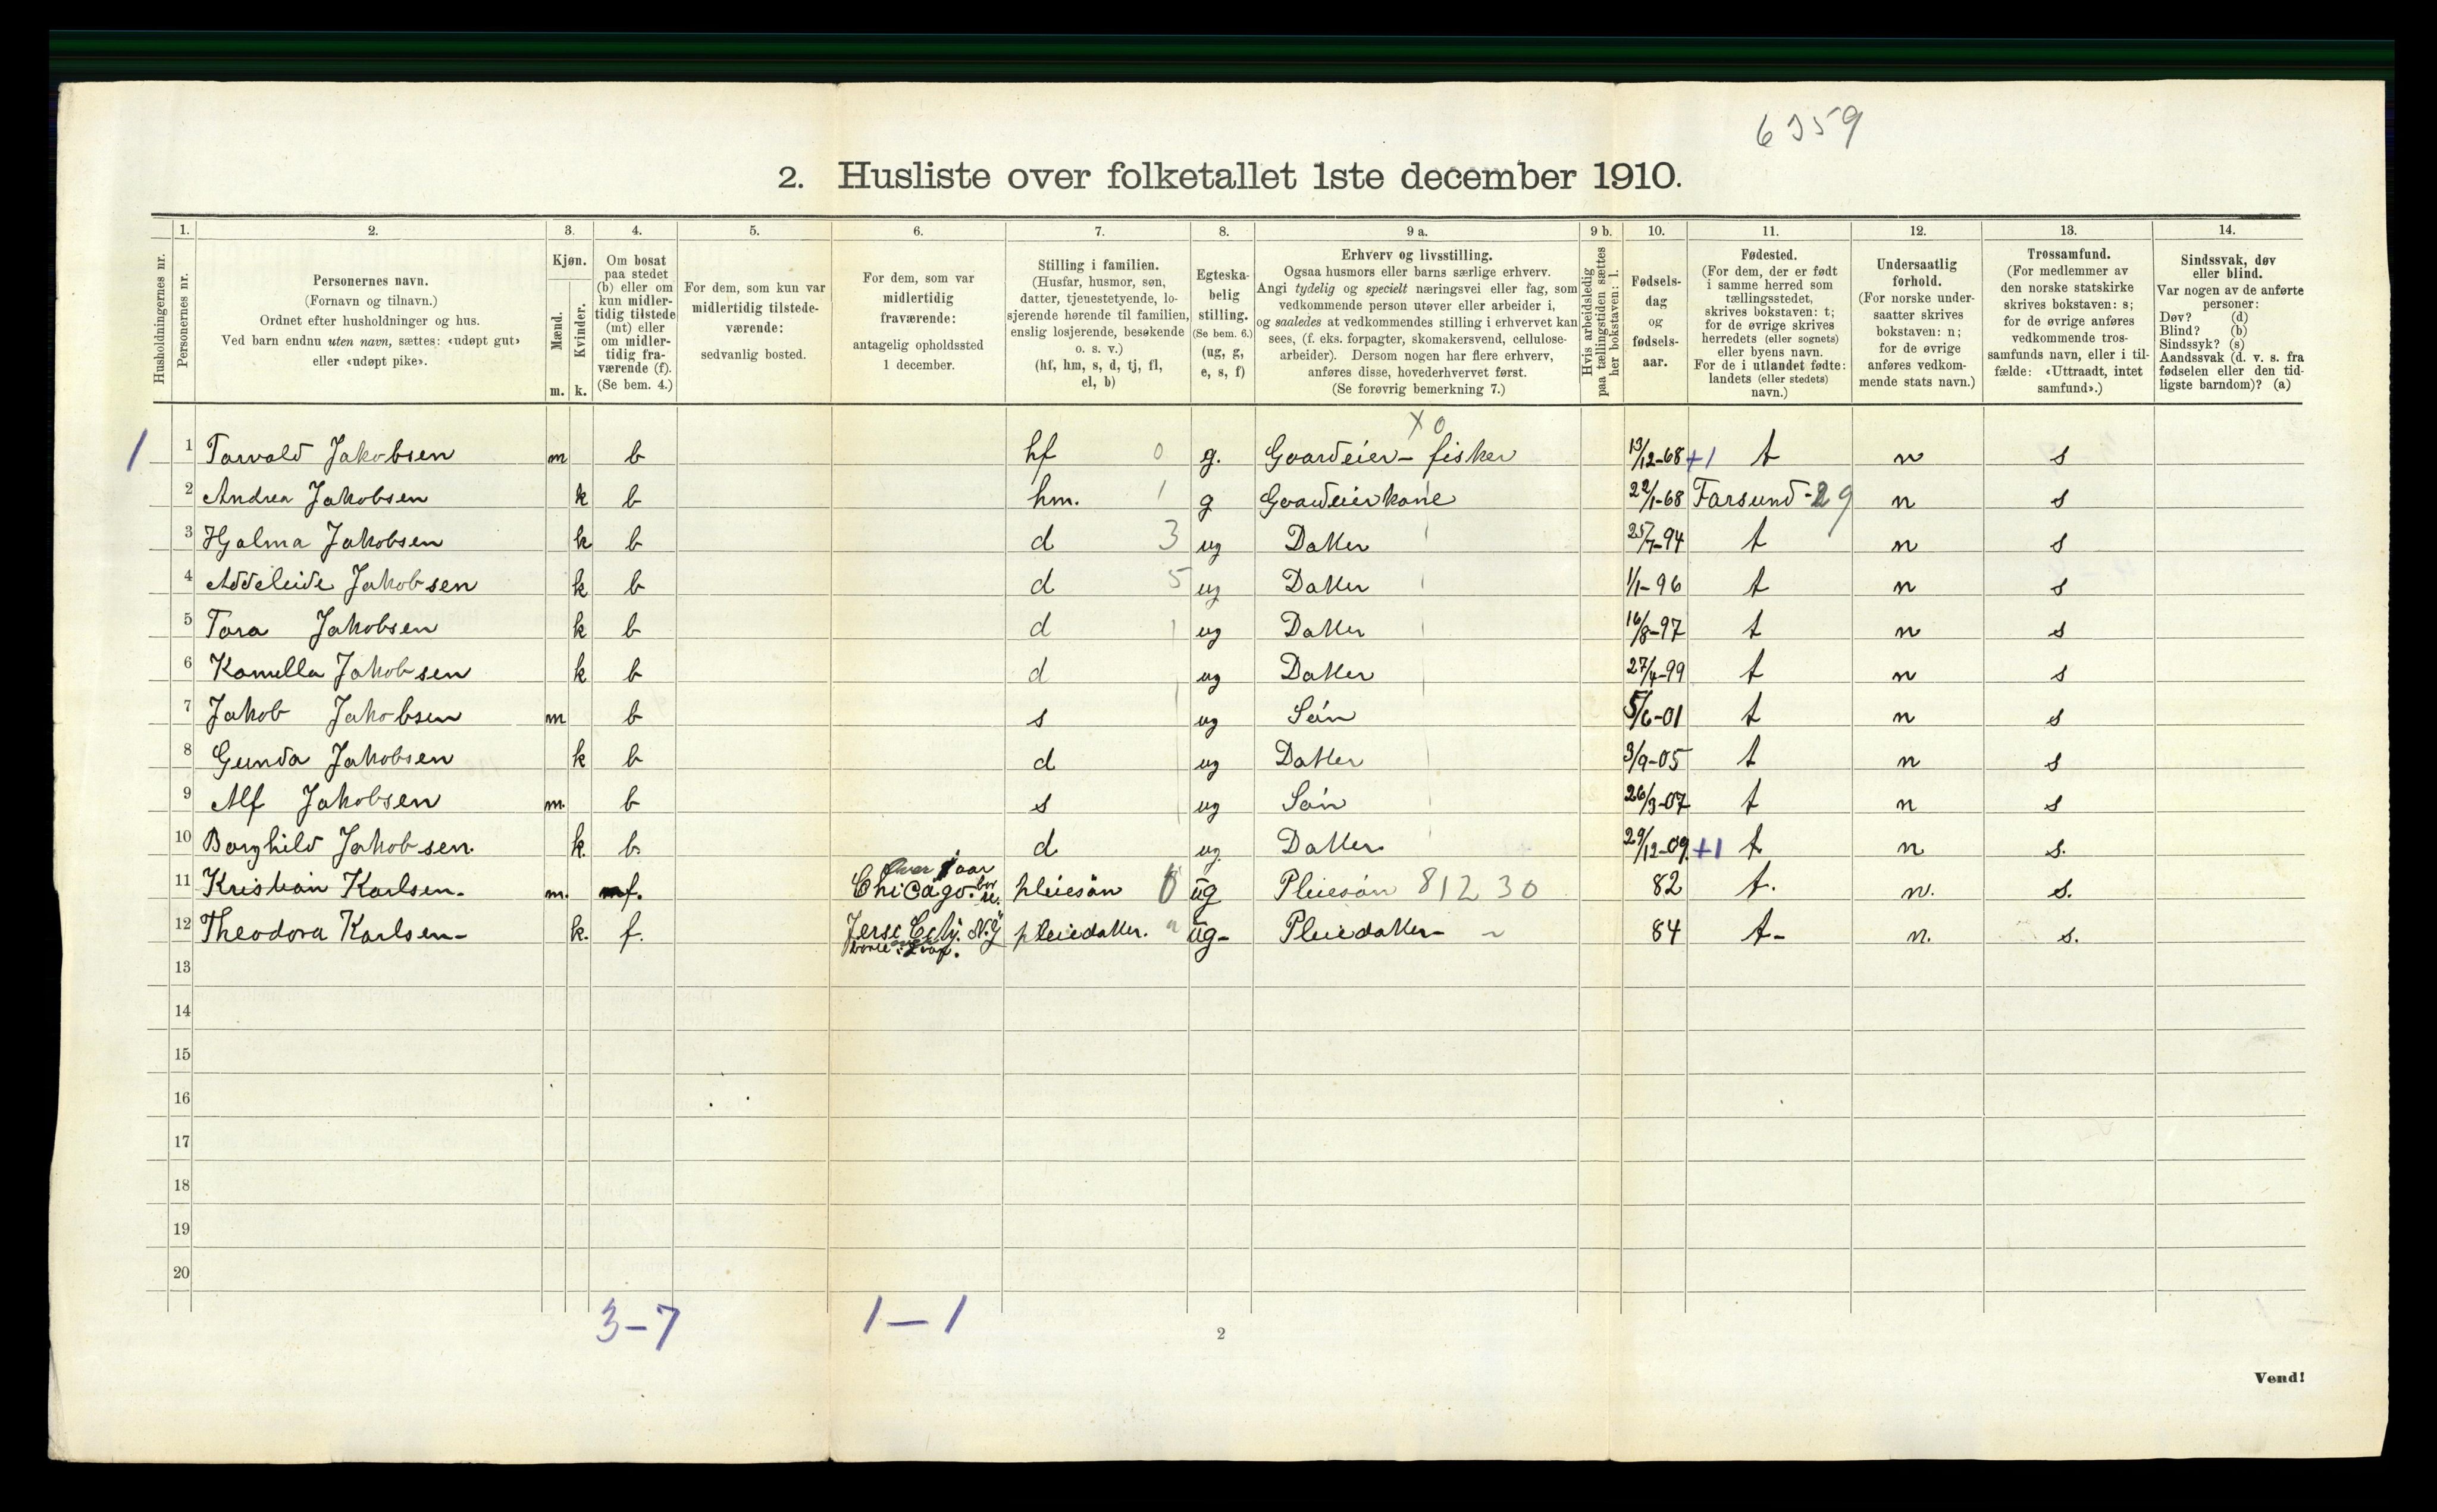 6359
2. Husliste over folketallet 1ste december 1910.
Husholdningernes nr.
1.
Personernes nr.
2.
Personernes navn.
(Fornavn og tilnavn.)
Ordnet efter husholdninger og hus.
Ved barn endnu uten navn, sættes: «udøpt gut»
eller «udøpt pike».
3.
Kjøn.
Mænd.
Kvinder.
m. k.
4.
Om bosat
paa stedet
(b) eller om
kun midler-
tidig tilstede
(mt) eller
om midler-
tidig fra-
værende (f).
(Se bem. 4.)
5.
For dem, som kun var
midlertidig tilstede-
værende:
sedvanlig bosted.
6.
For dem, som var
midlertidig
fraværende:
antagelig opholdssted
1 december.
7.
Stilling i familien.
(Husfar, husmor, søn,
datter, tjenestetyende, lo-
sjerende hørende til familien,
enslig losjerende, besøkende
o. s. v.)
(hf, hm, s, d, tj, fl,
el, b)
8.
Egteska-
belig
stilling.
(Se bem. 6.)
(ug, g,
e, s, f)
9 a.
Erhverv og livsstilling.
Ogsaa husmors eller barns særlige erhverv.
Angi tydelig og specielt næringsvei eller fag, som
vedkommende person utøver eller arbeider i,
og saaledes at vedkommendes stilling i erhvervet kan
sees, (f. eks. forpagter, skomakersvend, cellulose-
arbeider). Dersom nogen har flere erhverv,
anføres disse, hovederhvervet først.
(Se forøvrig bemerkning 7.)
9 b.
Hvis arbeidsledig
paa tællingstiden sættes
her bokstaven: l.
10.
Fødsels-
dag
og
fødsels-
aar.
11.
Fødested.
(For dem, der er født
i samme herred som
tællingsstedet,
skrives bokstaven: t;
for de øvrige skrives
herredets (eller sognets)
eller byens navn.
For de i utlandet fødte:
landets (eller stedets)
navn.)
12.
Undersaatlig
forhold.
(For norske under-
saatter skrives
bokstaven: n;
for de øvrige
anføres vedkom-
mende stats navn.)
13.
Trossamfund.
(For medlemmer av
den norske statskirke
skrives bokstaven: s;
for de øvrige anføres
vedkommende tros-
samfunds navn, eller i til-
fælde: «Uttraadt, intet
samfund».)
14.
Sindssvak, døv
eller blind.
Var nogen av de anførte
personer:
Døv? (d)
Blind? (b)
Sindssyk? (s)
Aandssvak (d. v. s. fra
fødselen eller den tid-
ligste barndom)? (a)
X 0
1 1 Torvald Jakobsen m b hf 0 g. Gaardeier - fisker 13/12-68 +1 t n s
2 Andrea Jakobsen k b hm. 1 g Gaardeierkone 22/1-68 Farsund - 29 n s
3 Hjalma Jakobsen k b d 3 ug Datter 25/7-94 t n s
4 Addeleide Jakobsen k b d 5 ug Datter 1/1-96 t n s
5 Tora Jakobsen k b d 1 ug Datter 16/8-97 t n s
6 Kamella Jakobsen k b d ug Datter 27/4-99 t n s
7 Jakob Jakobsen m b s ug Sön 5/6-01 t n s
8 Gunda Jakobsen k b d ug Datter 3/9-05 t n s
9 Alf Jakobsen m. b s ug Sön 26/3-07 t n s
10 Borghild Jakobsen. k. b. d ug. Datter. 29/12-09. +1 t. n s.
over 1 aar
11 Kristian Karlsen. m. f. Chicago. pleiesön 0 ug Pleiesön 81230 82 t. n. s.
12 Theodora Karlsen- k. f. Jerse City. N.J pleiedatter. ug- Pleiedatter- 84 t- n. s.
13
14
15
16
17
18
19
20
3-7 1-1
2
Vend!